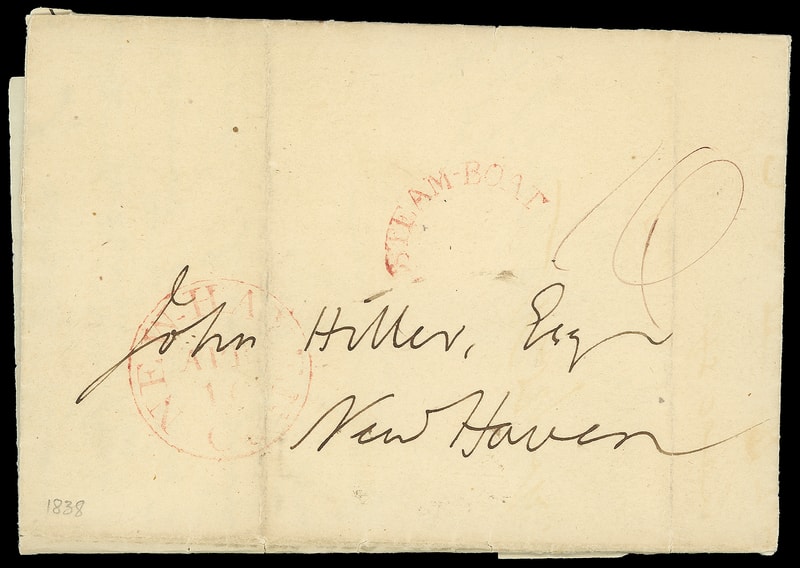 STEAM-BOAT
10
John Hiller, Esqr
New Haven
NEW-HAV
APR
10
1838